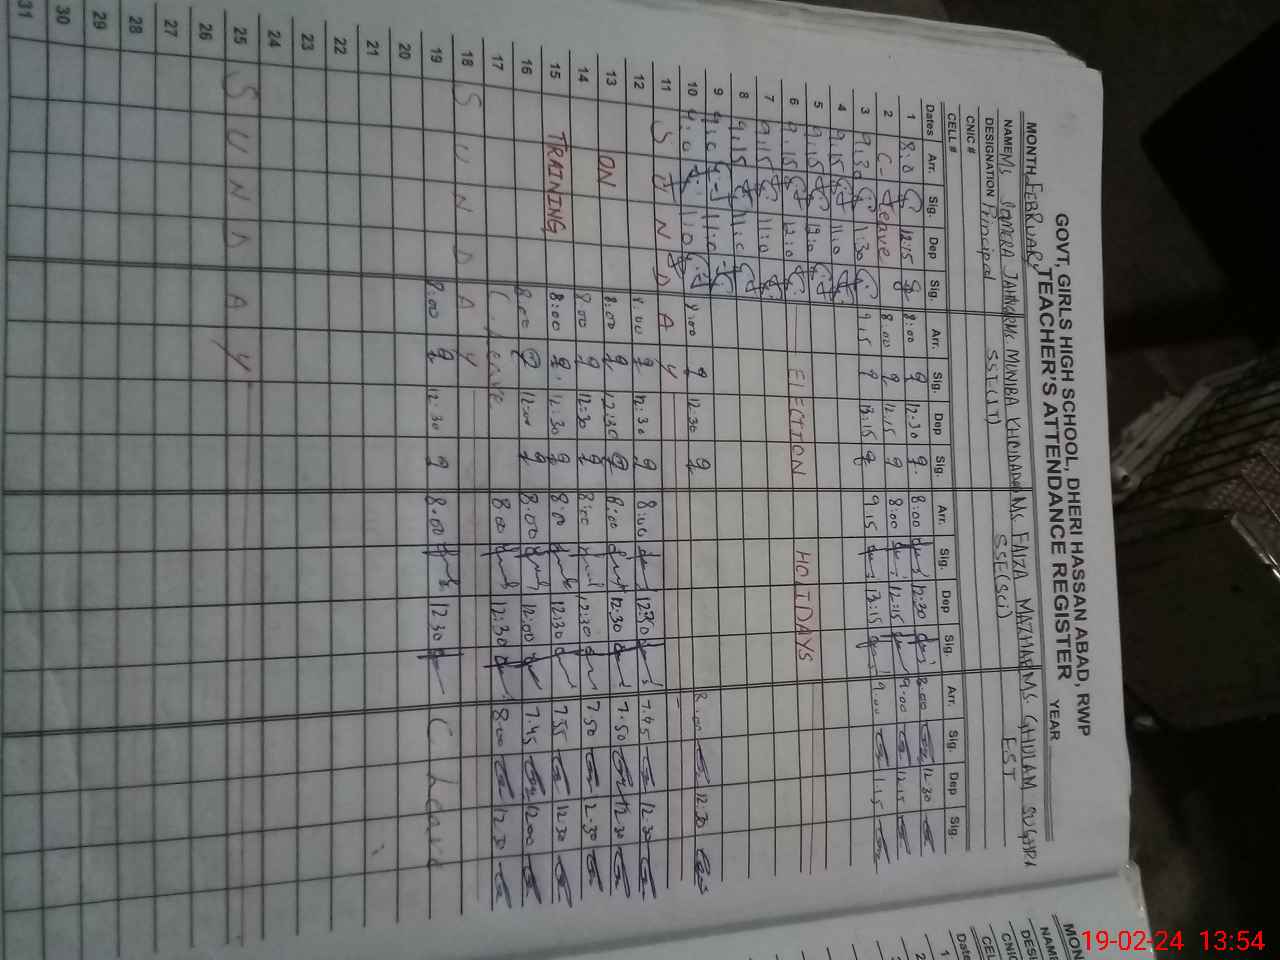 GOVT, GIRLS HIGH SCHOOL, DHERI HASSAN ABAD, RWP
TEACHER'S ATTENDANCE REGISTER YEAR
MONTH FEBRUARY
NAME Ms. MUNIBA Ms FAIZA MAZHAR Ms. GHULAM SUGHRA
DESIGNATION Principal SSE(IT) SSE(Sci) EST
CNIC #
CELL #
Dates Arr. Sig. Dep Sig. Arr. Sig. Dep Sig. Arr. Sig. Dep Sig. Arr. Sig. Dep Sig.
1 8:0 12:15 8:00 12:30 8:00 12:30 8:00 12:30
2 C-Leave 8:00 12:15 8:00 12:15 9:00 12:15
3 9:30 1:30 9:15 13:15 9:15 13:15 9:00 1:15
4 9:15 11:0
5 9:15 12:0
6 9:15 12:0 ELECTION HOLIDAYS
7 9:15 11:0
8 9:15 11:0
9 9:0 11:0
10 9:0 11:0 8:00 12:30 8:00 12:30
11 SUNDAY
12 8:00 12:30 8:00 12:30 7:45 12:30
13 ON 8:00 12:30 8:00 12:30 7:50 12:30
14 8:00 12:30 8:00 12:30 7:50 2:30
15 TRAINING 8:00 12:30 8:00 12:30 7:55 12:30
16 8:00 12:00 8:00 12:00 7:45 12:00
17 C.Leave 8:00 12:30 8:00 12:30
18 SUNDAY
19 8:00 12:30 8:00 12:30 C Leave
20
21
22
23
24
25 SUNDAY
26
27
28
29
30
31
MON
NAME
DES
CNIC
CEL
Date
1
2
19-02-24 13:54